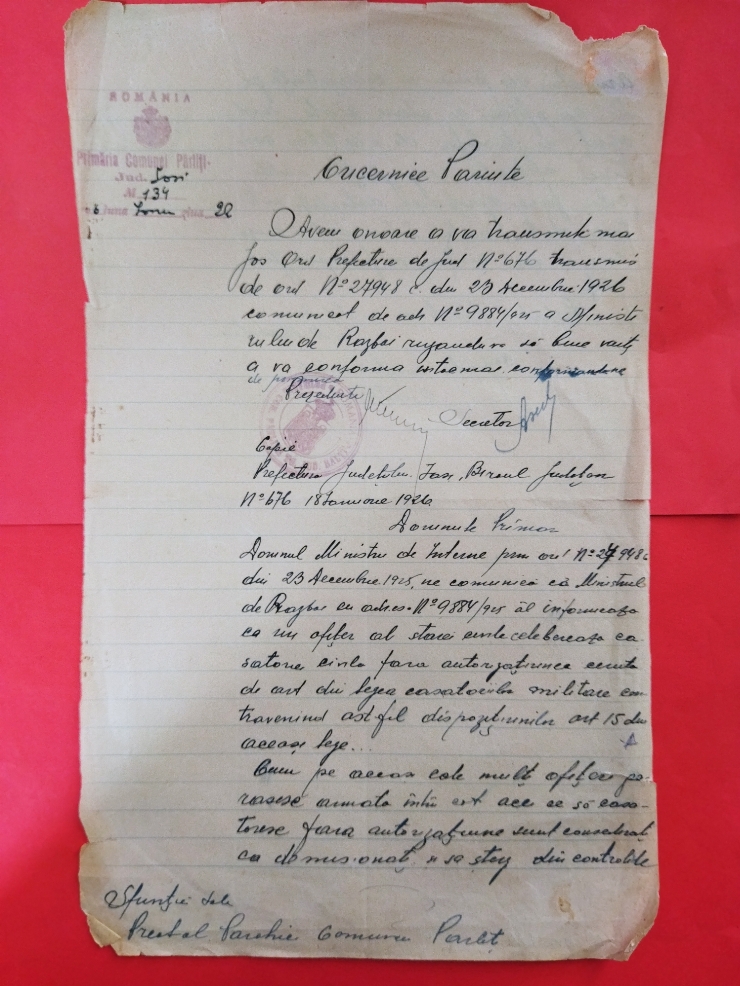 ROMÂNIA
Primăria Comunei Pârliți
Jud. Iași
№ 134
luna plus 22
Cucernice Parinte
Avem onoare a va transmite mai
jos Ord Prefecturei de Jud Nº 676 transmis
de ord Nº 27948 c. din 23 Decembrie 1926
comunicat de adr Nº 9884/925 a Ministe
rului de Razboi rugandu va să bine voiți
a va conforma
Președinte Secretar
Copie
Prefectura Județului Iasi, Biroul Județian
Nº 676 18 Ianuarie 1926
Domnule Primar
Domnul Ministru de Interne prin ord Nº 27948 c
din 23 Decembrie 1925, ne comunică că Ministerul
de Razboi cu adresa Nº 9884/925 îl informeaza
ca un ofițer al starei civile celebreaza ca-
satorie civila fara autorizațiunea ceruta
de art din legea casatoriilor militare con-
travenind astfel dispozițiunilor art 15 din
aceași lege...
Cum pe aceasi cale mulți ofițeri pa-
rasesc armata întru cât acei ce să casa-
toresc fara autorizațiune sunt considerați
ca demisionați și se șterg din controlele
Sfinției Sale
Preotul Parohiei Comunei Parliți